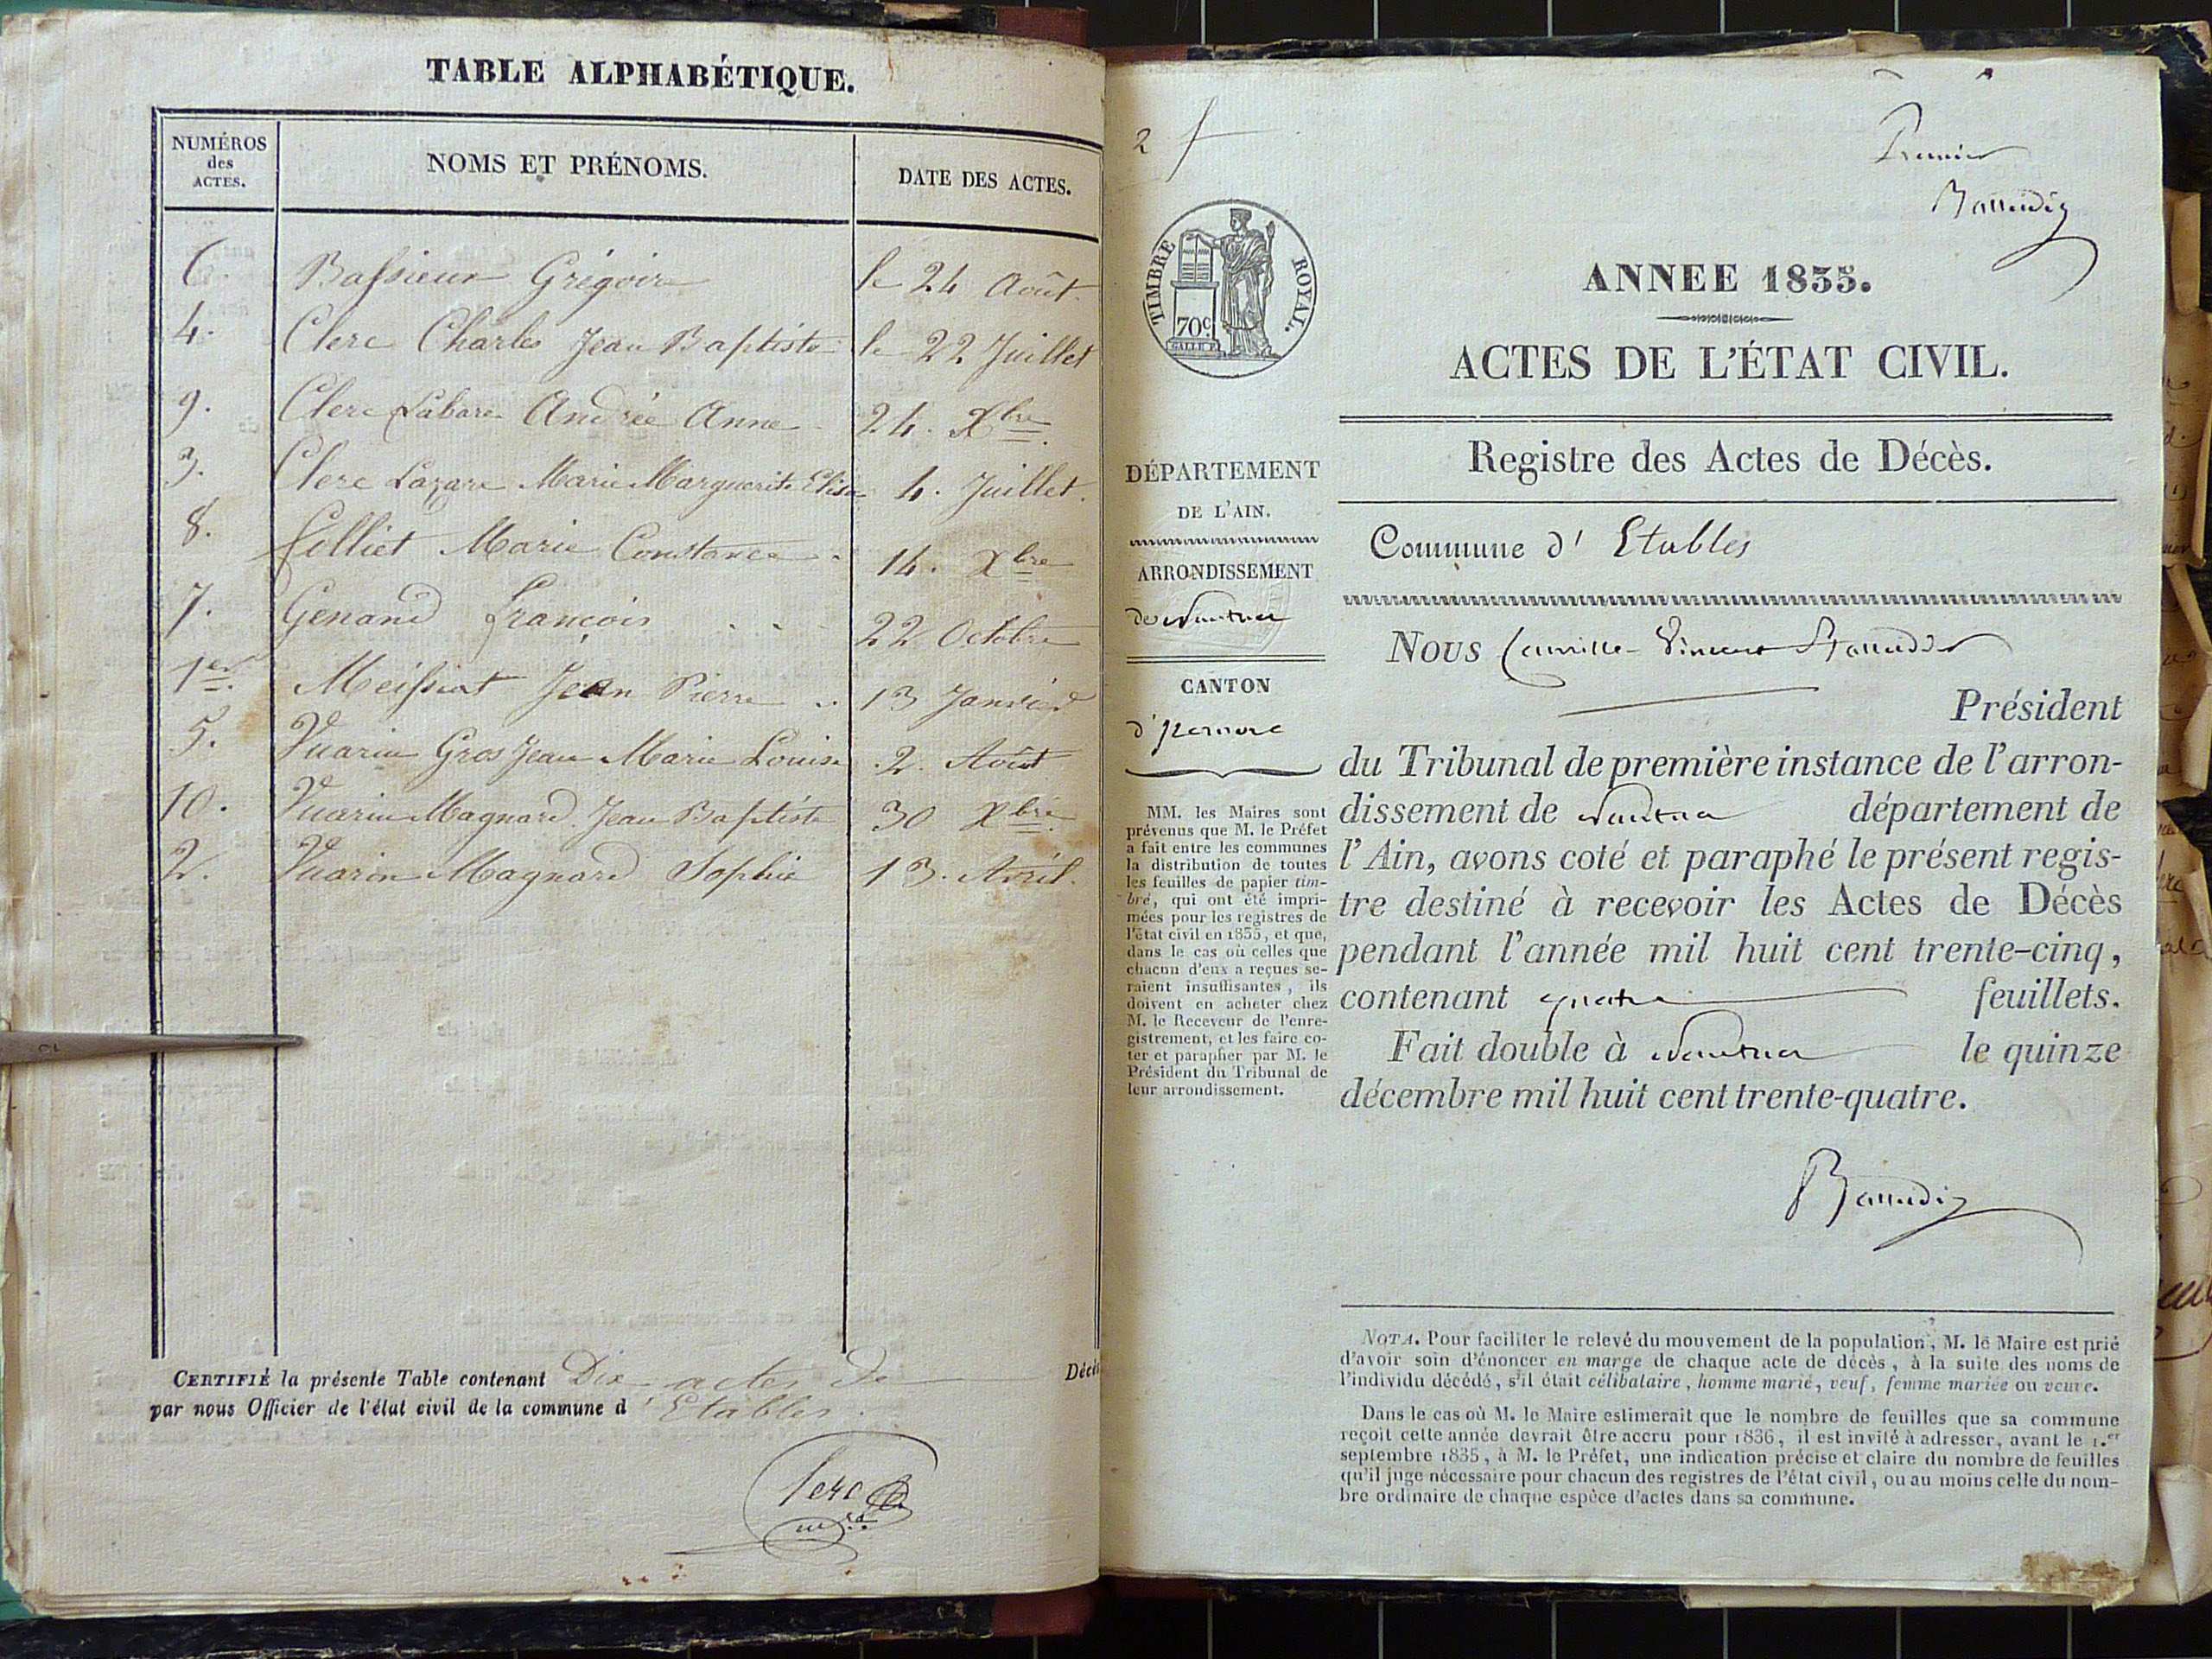 TABLE ALPHABÉTIQUE.
NUMÉROS
des
ACTES.
NOMS ET PRÉNOMS.
DATE DES ACTES.
6. Bassieux Grégoire le 24 Août.
4. Clerc Charles Jean Baptiste le 22 Juillet
9. Clerc Andrée Anne 24. Xbre
3. Clerc Lazare Marie Marguerite Elisa 4. Juillet.
8. Colliet Marie Constance 14. Xbre
7. Genand François . . . 22 Octobre
1er. Meissiat Jean Pierre .. 13 Janvier
5. Vuarin Gros Jean Marie Louise 2. Août
10. Vuarin Magnard Jean Baptiste 30 Xbre
2. Vuarin Magnard Sophie 13. Avril.
CERTIFIÉ la présente Table contenant Dix actes de Décès
par nous Officier de l'état civil de la commune d'Etables.
Clerc
2
Premier
TIMBRE ROYAL.
70c
ANNEE 1835.
ACTES DE L'ÉTAT CIVIL.
Registre des Actes de Décès.
DÉPARTEMENT
DE L'AIN.
ARRONDISSEMENT
de Nantua
CANTON
d'Izernore
MM. les Maires sont
prévenus que M. le Préfet
a fait entre les communes
la distribution de toutes
les feuilles de papier tim-
bré, qui ont été impri-
mées pour les registres de
l'état civil en 1835, et que,
dans le cas où celles que
chacun d'eux a reçues se-
raient insuffisantes, ils
doivent en acheter chez
M. le Receveur de l'enre-
gistrement, et les faire co-
ter et parapher par M. le
Président du Tribunal de
leur arrondissement.
Commune d' Etables
Nous Camille Vincent
Président
du Tribunal de première instance de l'arron-
dissement de Nantua département de
l'Ain, avons coté et paraphé le présent regis-
tre destiné à recevoir les Actes de Décès
pendant l'année mil huit cent trente-cinq,
contenant quatre feuillets.
Fait double à Nantua le quinze
décembre mil huit cent trente-quatre.
NOTA. Pour faciliter le relevé du mouvement de la population, M. le Maire est prié
d'avoir soin d'énoncer en marge de chaque acte de décès, à la suite des noms de
l'individu décédé, s'il était célibataire, homme marié, veuf, femme mariée ou veuve.
Dans le cas où M. le Maire estimerait que le nombre de feuilles que sa commune
reçoit cette année devrait être accru pour 1836, il est invité à adresser, avant le 1.er
septembre 1835, à M. le Préfet, une indication précise et claire du nombre de feuilles
qu'il juge nécessaire pour chacun des registres de l'état civil, ou au moins celle du nom-
bre ordinaire de chaque espèce d'actes dans sa commune.